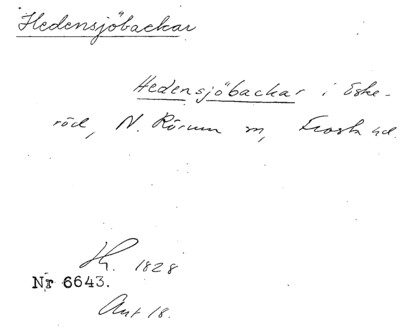 Hedensjöbackar
Hedensjöbackar i Eske-
röd, N. Rörum sn, Frosta hd.
Hs. 1828
Nr 6643.
Ant 18.